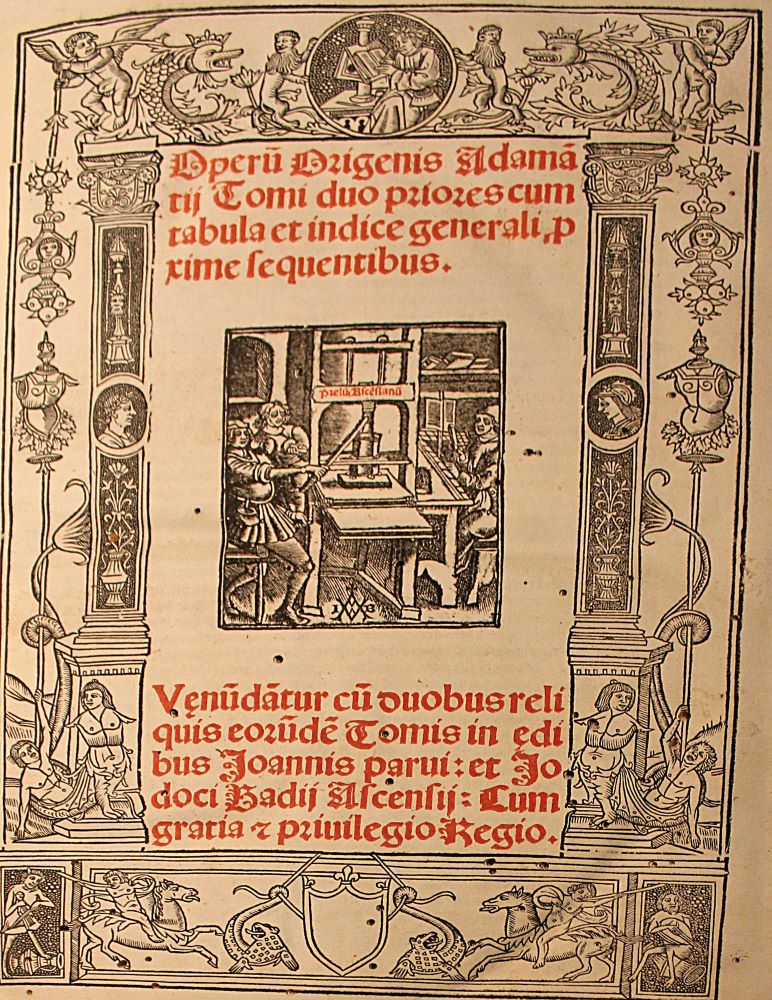 Operū Origenis Adamā
tij Tomi duo priores cum
tabula et indice generali ꝓ
xime sequentibus.
Prelū Ascēsianū
Vęnūdātur cū duobus reli
quis eorūdē Tomis in edi
bus Joannis parui: et Jo
doci Badij Ascensij: Cum
gratia ⁊ priuilegio Regio.